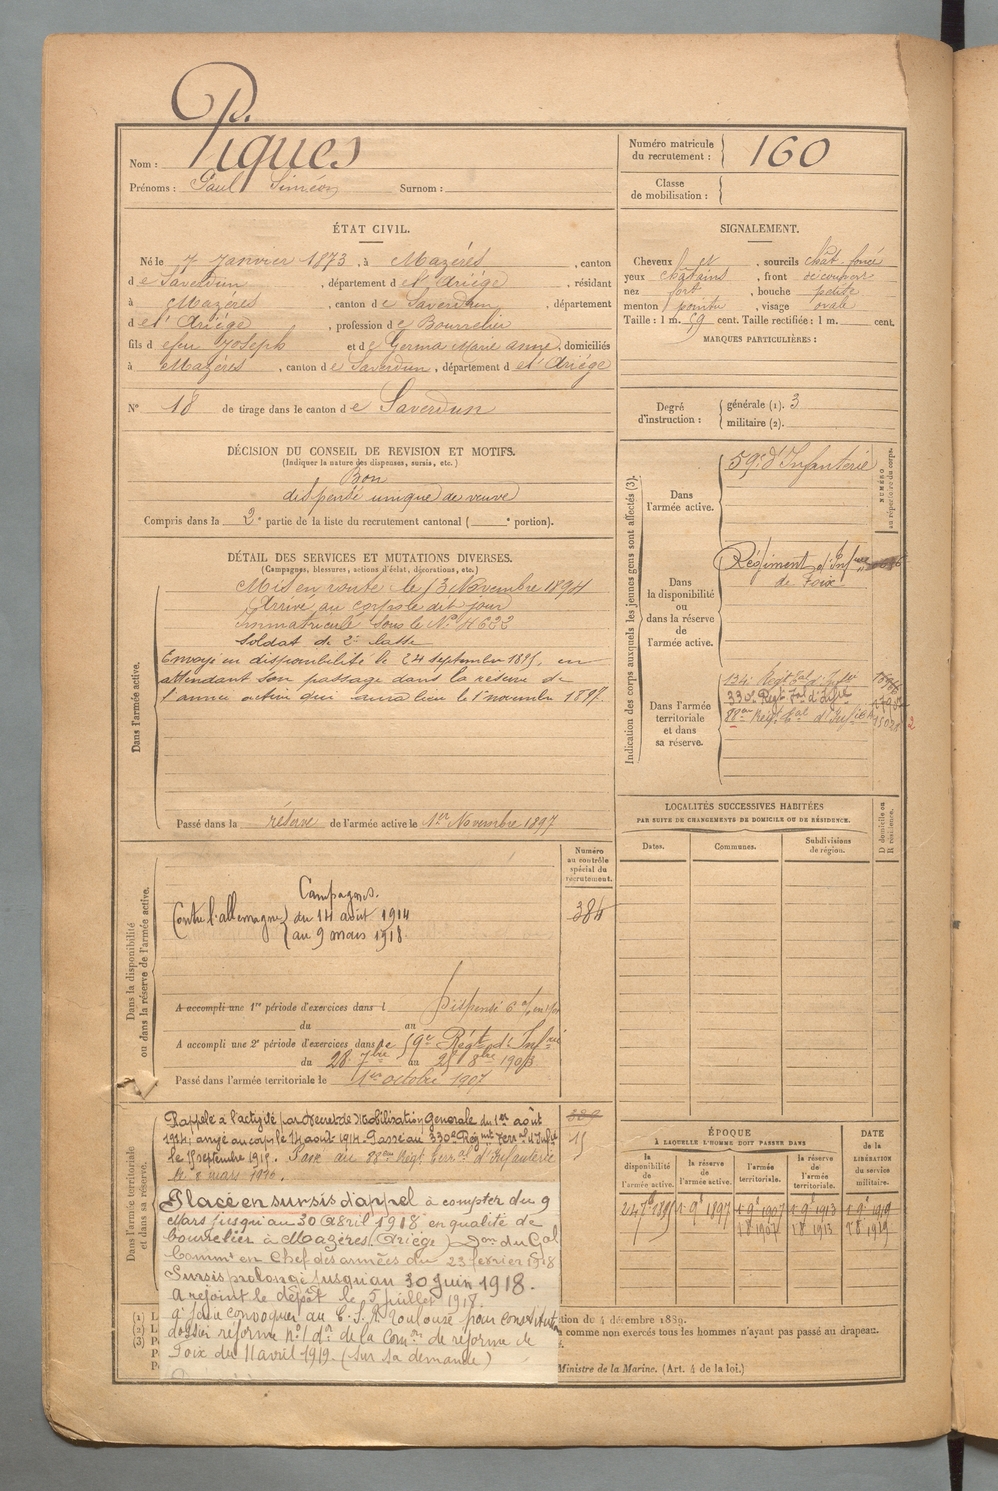 P.
Nom : Piques
Prénoms : Paul Siméon Surnom :
Numéro matricule du recrutement : 160
Classe de mobilisation :
ÉTAT CIVIL.
Né le 7 Janvier 1873, à Mazéres, canton
de Saverdun, département de l'Ariége, résidant
à Mazéres, canton de Saverdun, département
de l'Ariége, profession de Bourrelier
fils de feu Joseph et de Germa Marie anne, domiciliés
à Mazéres, canton de Saverdun, département de l'Ariége
N° 18 de tirage dans le canton de Saverdun
SIGNALEMENT.
Cheveux et, sourcils chât. foncé
yeux châtains, front découvert
nez fort, bouche petite
menton pointu, visage ovale
Taille : 1 m. 59 cent. Taille rectifiée : 1 m. cent.
MARQUES PARTICULIÈRES :
Degré d'instruction : générale (1). 3
militaire (2).
DÉCISION DU CONSEIL DE REVISION ET MOTIFS.
(Indiquer la nature des dispenses, sursis, etc.)
Bon
dispensé unique de veuve
Compris dans la 2e partie de la liste du recrutement cantonal ( e portion).
DÉTAIL DES SERVICES ET MUTATIONS DIVERSES.
(Campagnes, blessures, actions d'éclat, décorations, etc.)
Dans l'armée active.
Mis en route le 13 Novembre 1894
Arrivé au corps le dit jour
Immatriculé sous le N° 4622
Soldat de 2e classe
Envoyé en disponibilité le 24 septembre 1895, en
attendant son passage dans la réserve de
l'armée active qui aura lieu le 1er novembre 1897.
Passé dans la réserve de l'armée active le 1er Novembre 1897
Indication des corps auxquels les jeunes gens sont affectés (3).
NUMÉRO au répertoire du corps.
Dans l'armée active.
59e d'Infanterie
Dans la disponibilité ou dans la réserve de l'armée active.
Régiment d'Infrie
de Foix
Dans l'armée territoriale et dans sa réserve.
134e Régt Tal d'Infie
330e Régt Tal d'Infie
88eme Régt Tal d'Infie
LOCALITÉS SUCCESSIVES HABITÉES
PAR SUITE DE CHANGEMENTS DE DOMICILE OU DE RÉSIDENCE.
D domicile ou R résidence.
Dates. Communes. Subdivisions de région.
Dans la disponibilité ou dans la réserve de l'armée active.
Numéro au contrôle spécial du recrutement.
384
Campagnes.
Contre l'allemagne du 14 août 1914
au 9 mars 1918.
A accompli une 1re période d'exercices dans l Dispensé
du au
A accompli une 2e période d'exercices dans le 59e Régt d'Infrie
du 28 7bre au 25 8bre 1903
Passé dans l'armée territoriale le 1er octobre 1907
Dans l'armée territoriale et dans sa réserve.
Rappelé à l'activité par décret de Mobilisation Générale du 1er août
1914; arrivé au corps le 14 août 1914. Passé au 330e Régiment Terral d'Infie
le 15 septembre 1915. Passé au 88eme Régt Terr.al d'Infanterie
15
Placé en sursis d'appel à compter du 9
Mars jusqu'au 30 Avril 1918 en qualité de
bourrelier à Mazéres (Ariège) Don du Gal
Commt en Chef des armées du 23 février 1918
Sursis prolongé jusqu'au 30 Juin 1918.
A rejoint le dépôt le 5 juillet 1918.
convoquer au C.S.R Toulouse pour constituti
dossier réforme n°1 don de la Comon de réforme de
Foix du 11 avril 1919. (sur sa demande)
ÉPOQUE
À LAQUELLE L'HOMME DOIT PASSER DANS
la disponibilité de l'armée active. la réserve de l'armée active. l'armée territoriale. la réserve de l'armée territoriale.
DATE de la LIBÉRATION du service militaire.
24 7b 1895 1. 9e 1897 1. 9e 1907 1. 9e 1913 1. 9e 1919
1 8 1907 1 8 1913 1 8 1919
(1) L
(2) L
(3)
tion du 4 décembre 1889.
comme non exercés tous les hommes n'ayant pas passé au drapeau.
Ministre de la Marine. (Art. 4 de la loi.)